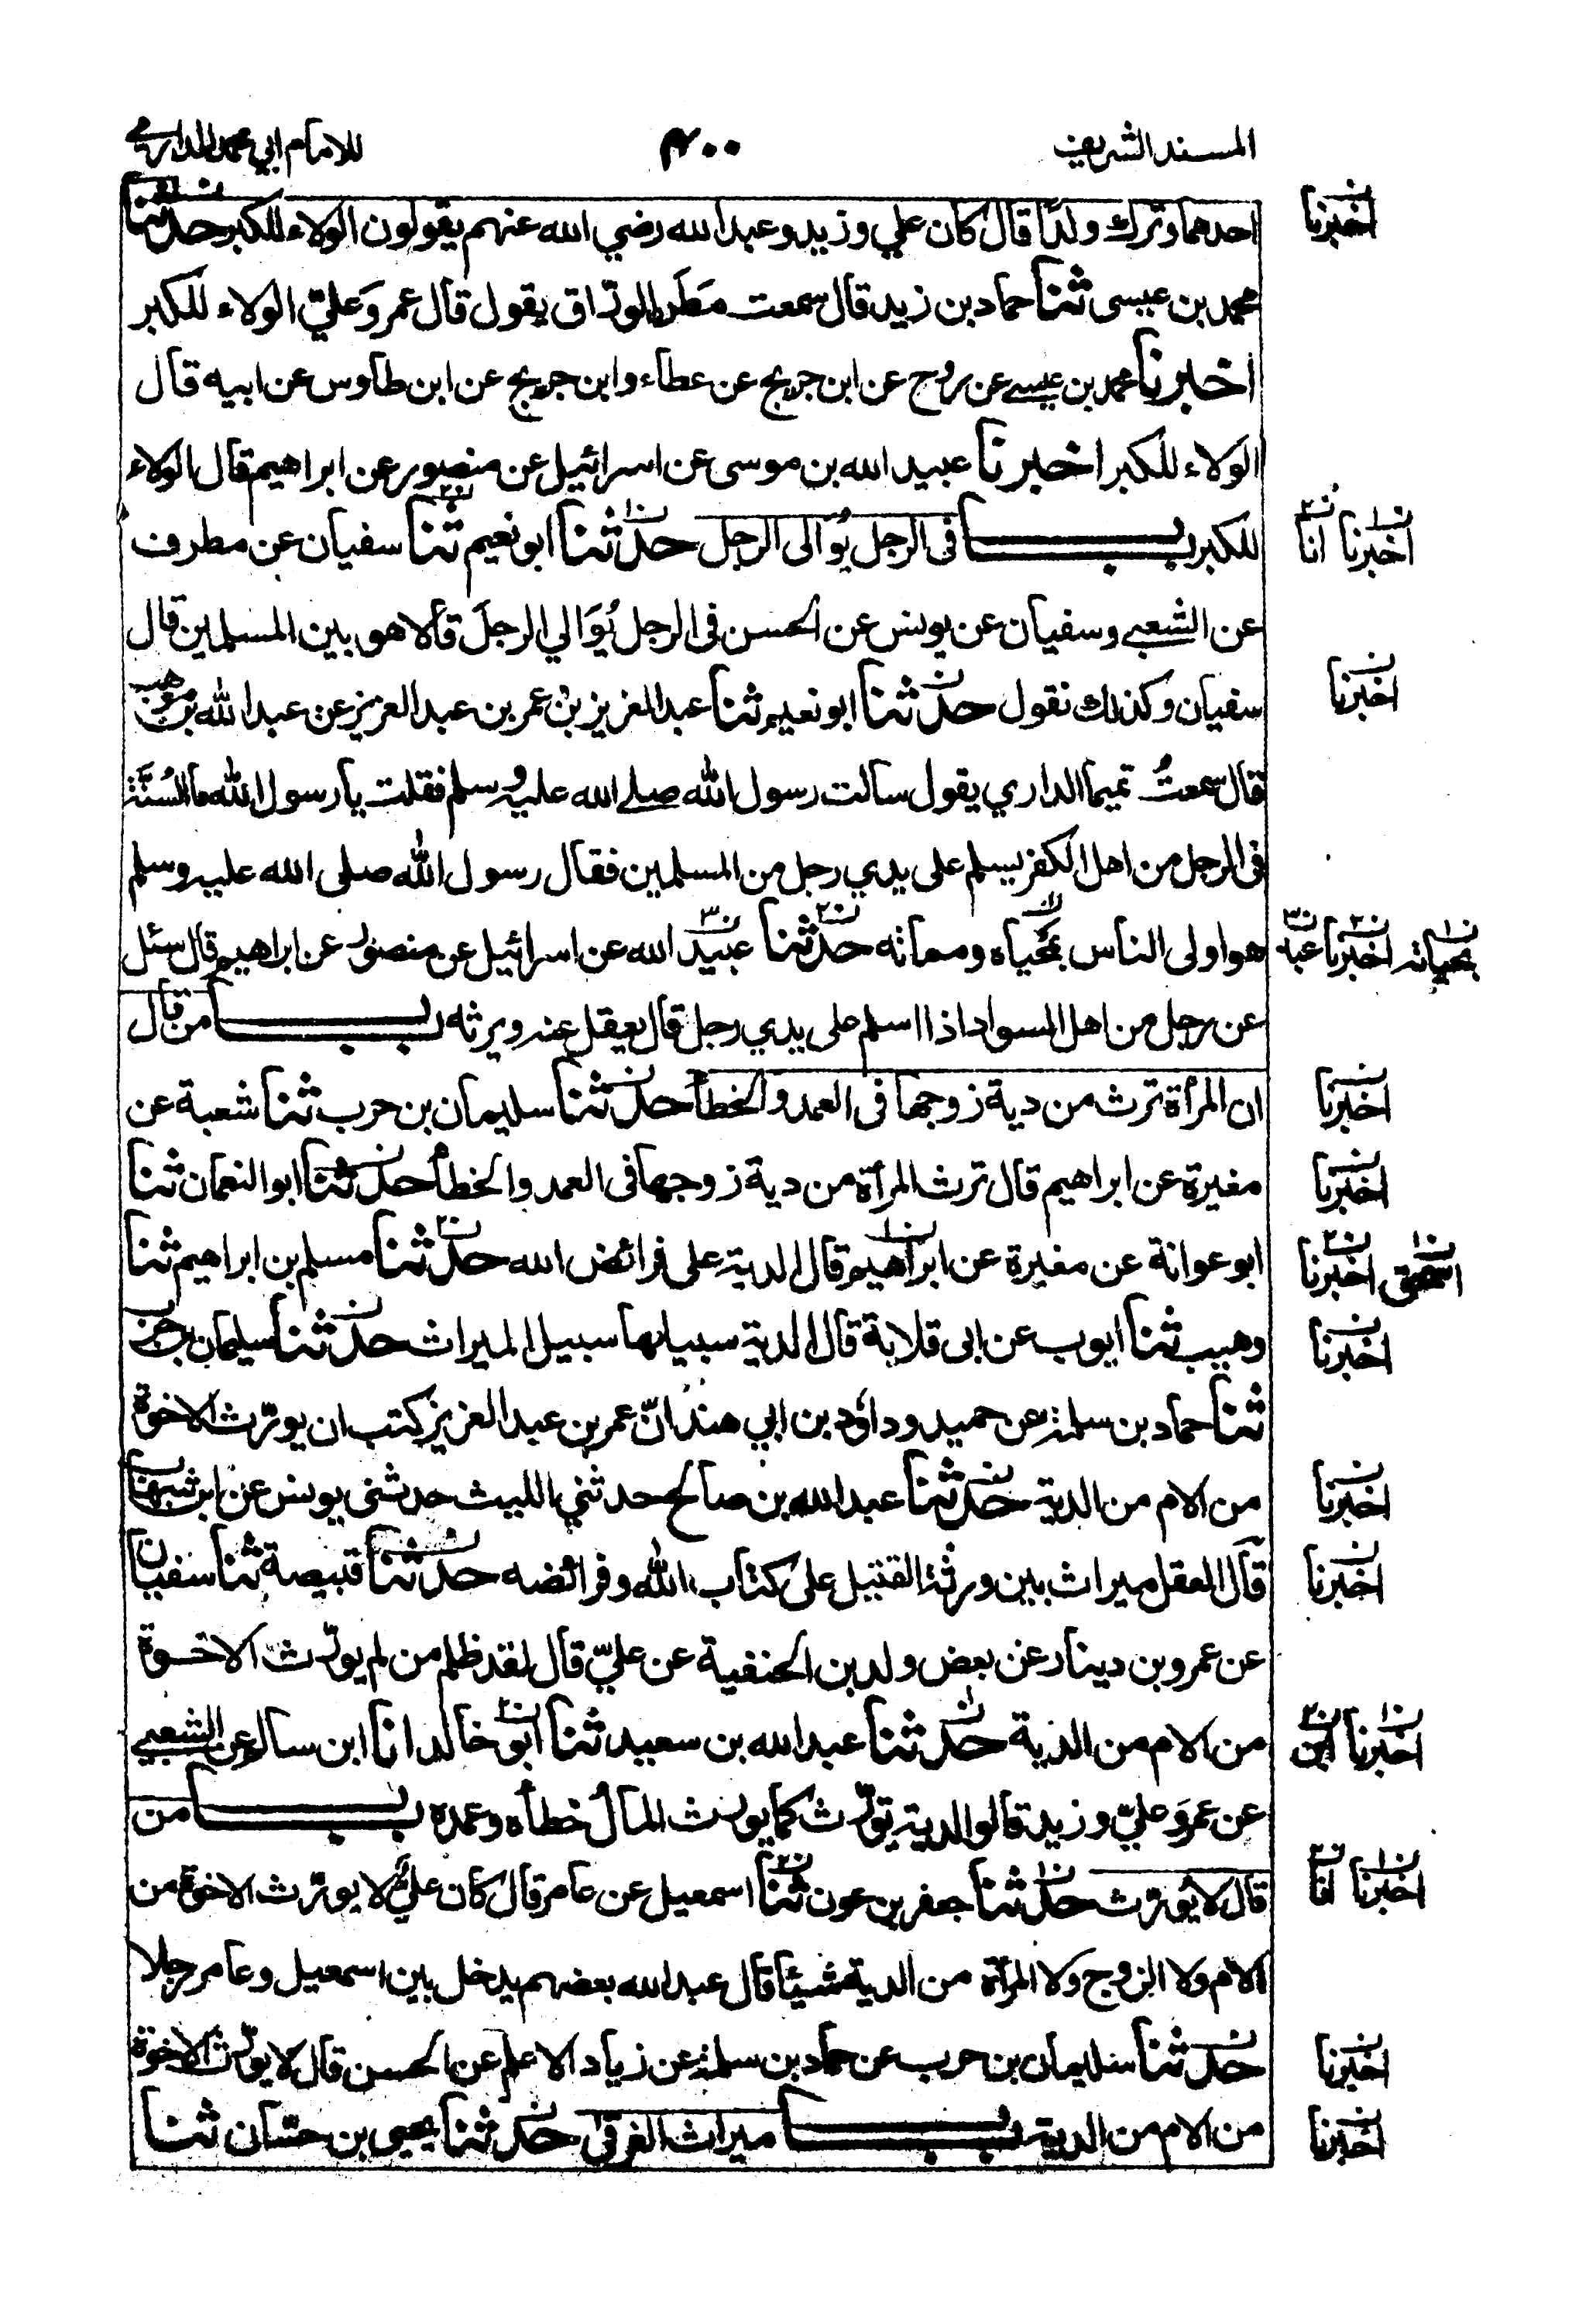 المسند الشريف ٤٠٠ للامام ابي محمد الدارمي
احدهما وترك ولدًا قال كان علي وزيد وعبد الله رضي الله عنهم يقولون الولاء للكبر حدثنا
محمد بن عيسى ثنا حماد بن زيد قال سمعت مَطَرا الورّاق يقول قال عمر وَعليّ الولاء للكبر
اخبرنا محمد بن عيسى عن روح عن ابن جريج عن عطاء وابن جريج عن ابن طاوس عن ابيه قال
الولاء للكبر اخبرنا عبيد الله بن موسى عن اسرائيل عن منصور عن ابراهيم قال الولاء
للكبر باب فى الرجل يُوَالى الرجل حدثنا ابو نعيم ثنا سفيان عن مطرف
عن الشعبي وسفيان عن يونس عن الحسن فى الرجل يُوَالي الرجلَ قالا هو بين المسلمين قال
سفيان وكذلك نقول حدثنا ابو نعيم ثنا عبد العزيز بن عمر بن عبد العزيز عن عبد الله بن موهب
قال سمعتُ تميما الداري يقول سالت رسول الله صلى الله عليه وسلم فقلت يا رسول الله ما السُنَّة
فى الرجل من اهل الكفر يسلم على يدي رجل من المسلمين فقال رسول الله صلى الله عليه وسلم
هو اولى الناس بمحياه ومماته حدثنا عبيد الله عن اسرائيل عن منصور عن ابراهيم قال سئل
عن رجل من اهل السواد اذا اسلم على يدي رجل قال يعقل عنه ويرثه باب من قال
ان المرأة ترث من دية زوجها فى العمد والخطأ حدثنا سليمان بن حرب ثنا شعبة عن
مغيرة عن ابراهيم قال ترث المرأة من دية زوجها فى العمد والخطأ حدثنا ابو النعمان ثنا
ابو عوانة عن مغيرة عن ابراهيم قال الدية على فرائض الله حدثنا مسلم بن ابراهيم ثنا
وهيب ثنا ايوب عن ابى قلابة قال الدية سبيلها سبيل الميراث حدثنا سليمان بن حرب
ثنا حماد بن سلمة عن حميد وداؤد بن ابي هند انّ عمر بن عبد العزيز كتب ان يورّث الاخوة
من الام من الدية حدثنا عبد الله بن صالح حدثني الليث حدثنى يونس عن ابن شهاب
قال العقل ميراث بين ورثة القتيل على كتاب الله وفرائضه حدثنا قبيصة ثنا سفيان
عن عمرو بن دينار عن بعض ولد بن الحنفية عن عليّ قال لقد ظلم من لم يورّث الاخوة
من الام من الدية حدثنا عبد الله بن سعيد ثنا ابو خالد انا ابن سالم عن الشعبي
عن عمرَ وعليّ وزيد قالوا الدية تورّث كما يورث المالُ خطأه وعمده باب من
قال لا يُورّث حدثنا جعفر بن عون ثنا اسمعيل عن عامر قال كان عليٌّ لا يورّث الاخوة من
الام ولا الزوج ولا المرأة من الدية شيئا قال عبد الله بعضهم يدخل بين اسمعيل وعامر رجلا
حدثنا سليمان بن حرب عن حماد بن سلمة عن زياد الاعلم عن الحسن قال لا يورّث الاخوة
من الام من الدية باب ميراث الغرقى حدثنا يحيى بن حسّان ثنا
اخبرنا
اخبرنا انا
اخبرنا
بحياته اخبرنا عبد
اخبرنا
اخبرنا
اسحق اخبرنا
اخبرنا
اخبرنا
اخبرنا
اخبرنا ابن
اخبرنا انا
اخبرنا
اخبرنا